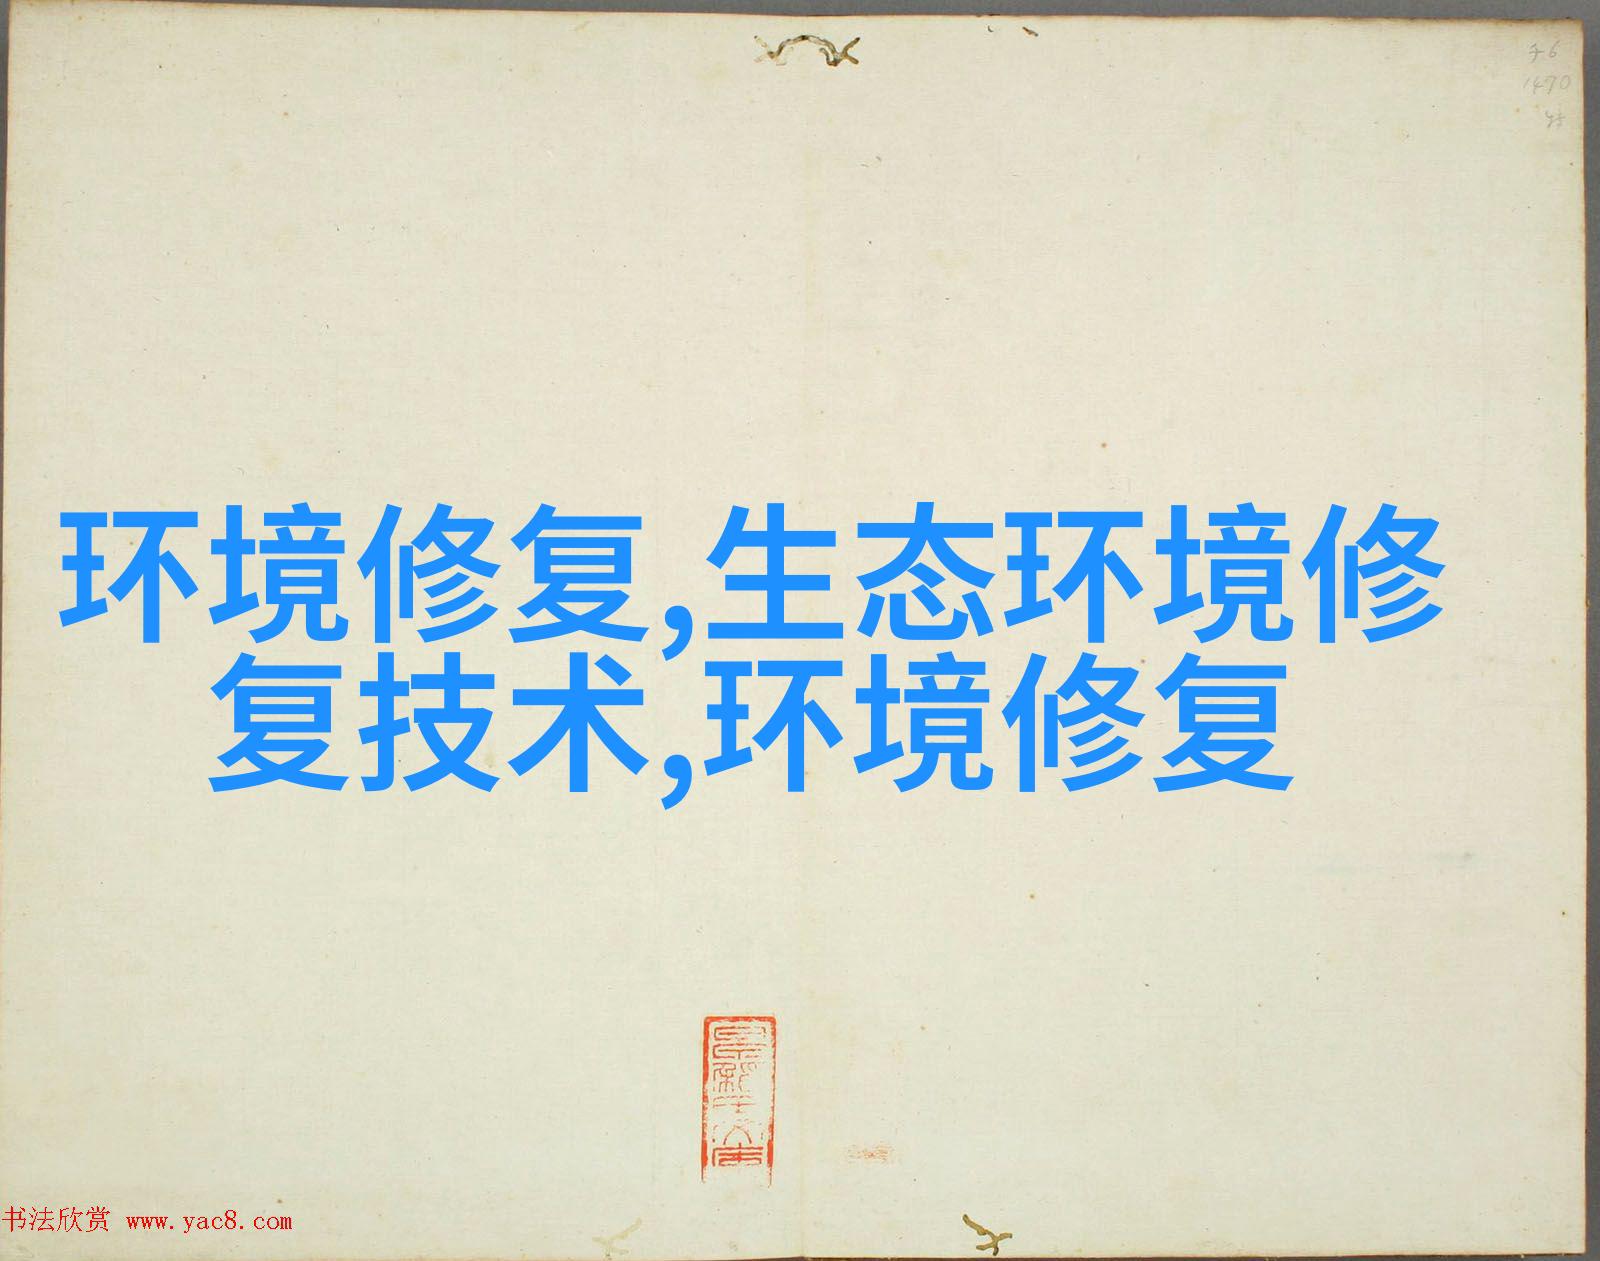 1470
环境修复,生态环境修
复技术,环境修复
书法欣赏 www.yac8.com